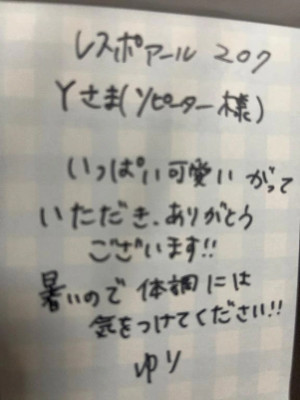 レスポアール 207
Yさま(リピーター様)
いっぱい可愛いがって
いただき、ありがとう
ございます!!
暑いので 体調には
気をつけてください!!
ゆり